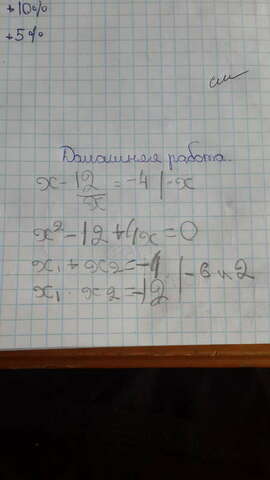 +10%
+5%
см
Домашняя работа.
x - 12/x = -4 | · x
x² - 12 + 4x = 0
x₁ + x₂ = -4 | -6 и 2
x₁ · x₂ = -12